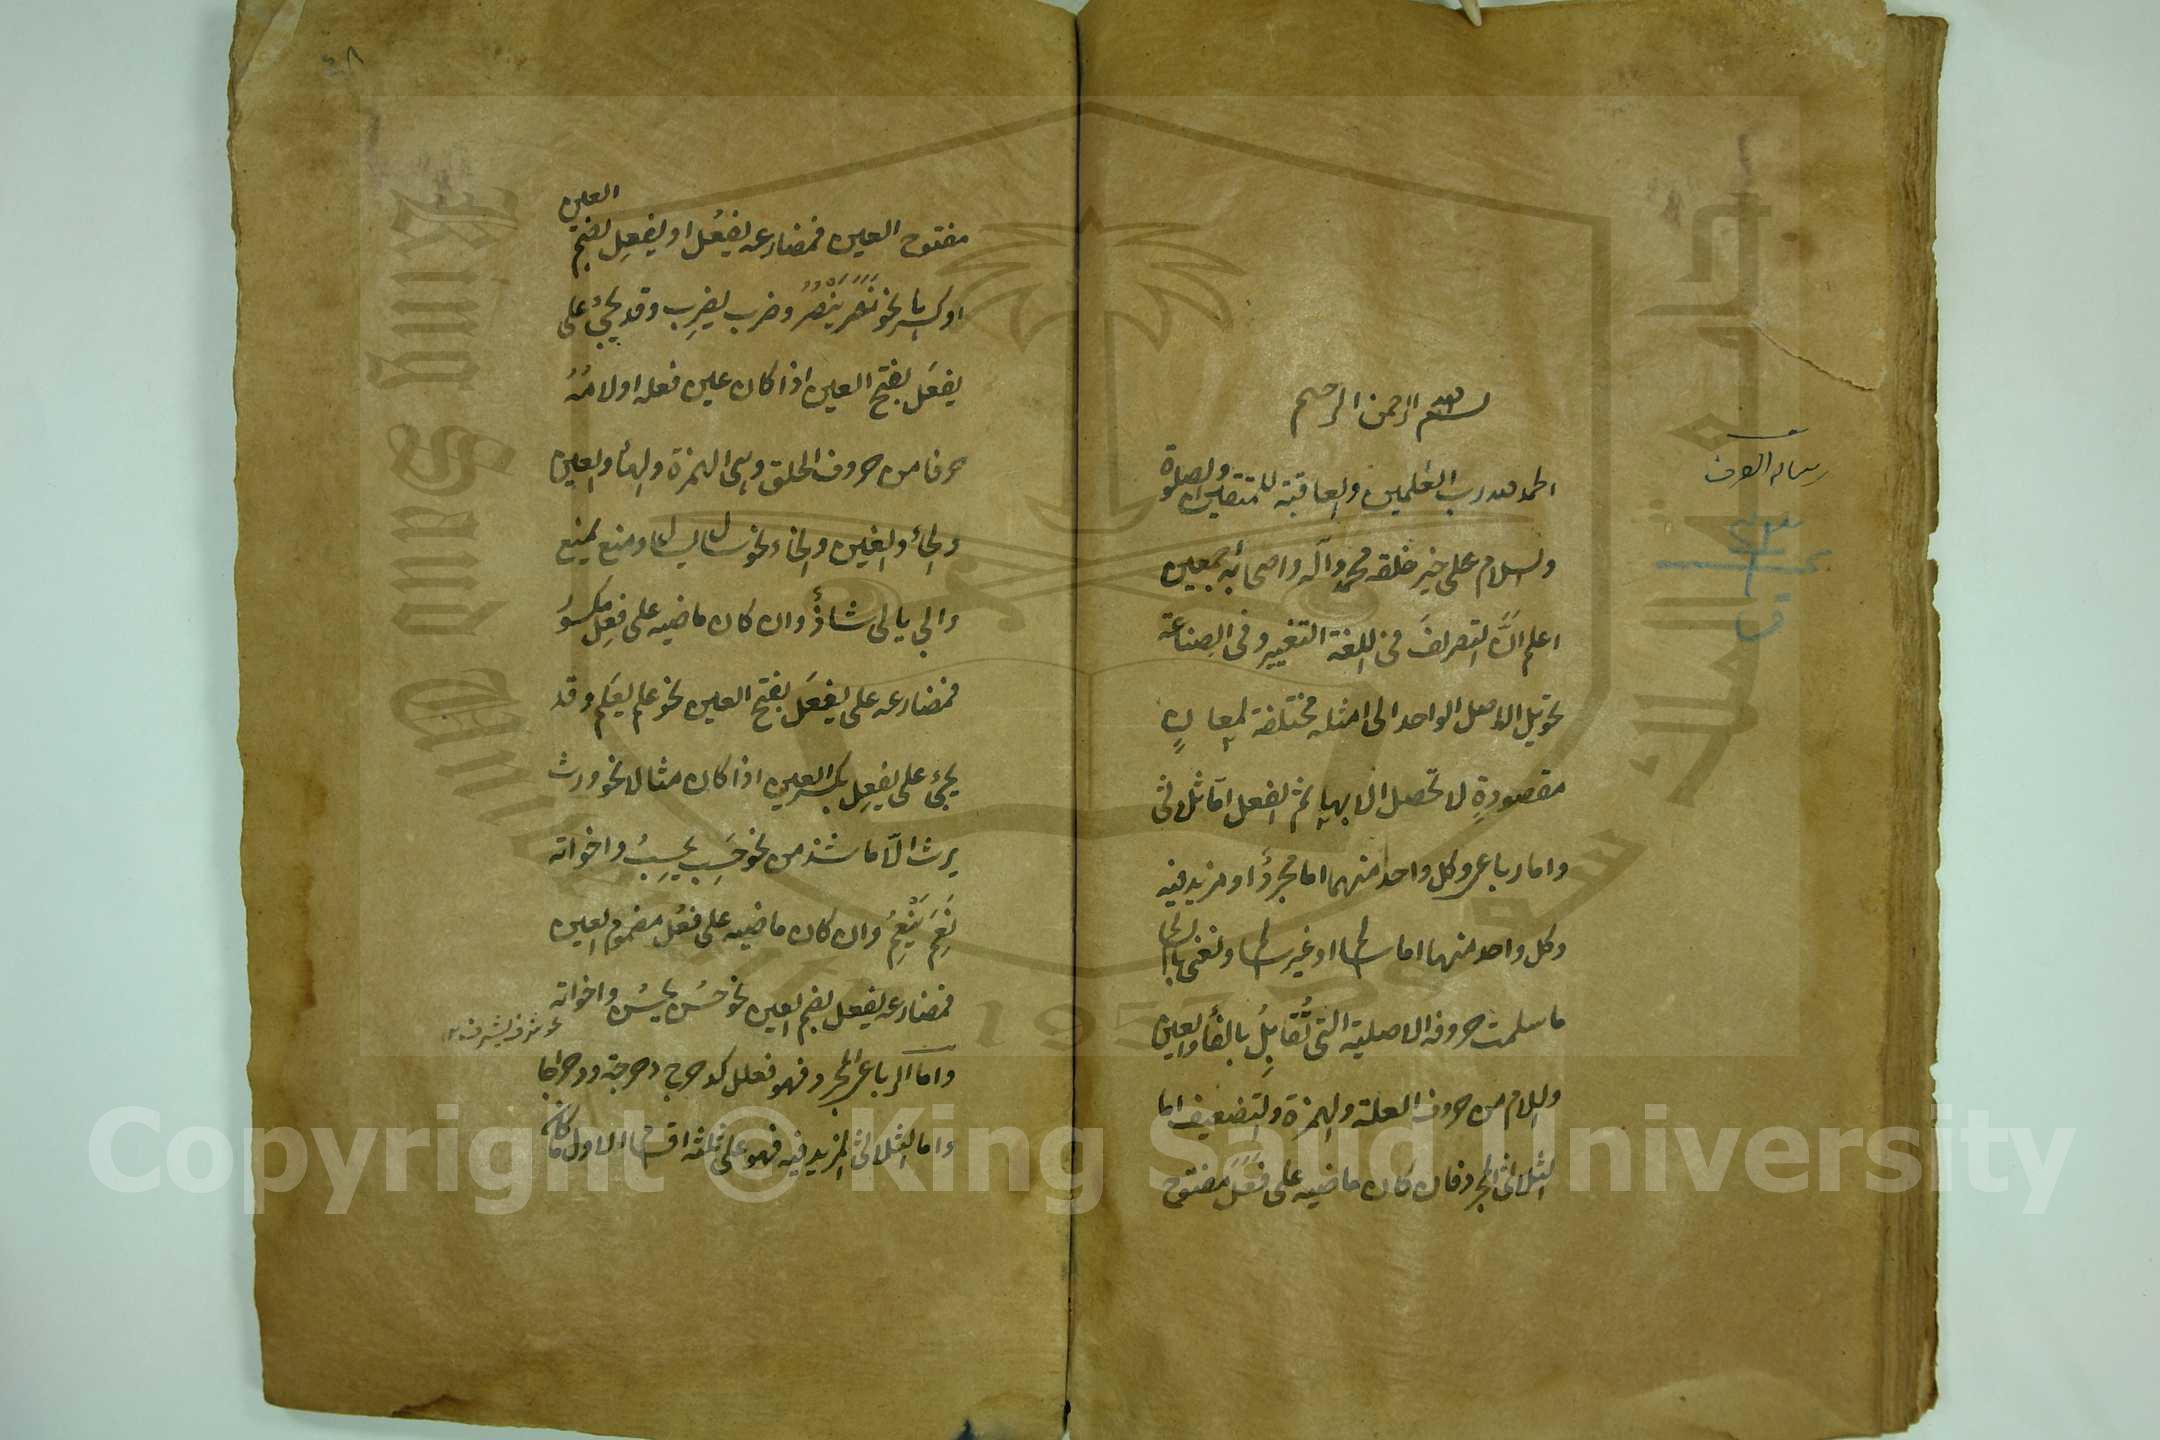 بسم الله الرحمن الرحيم
الحمد لله رب العلمين والعاقبة للمتقين والصلوة
والسلام على خير خلقه محمد وآله واصحابه اجمعين
اعلم انّ التصريفَ فى اللغة التغيير وفى الصِناعة
تحويل الاصل الواحد الى امثلة مختلفة لمعانٍ
مقصودةٍ لا تحصل الا بها ثم الفعل امّا ثلاثى
واما رباعى وكل واحد منهما اما مجردٌ او مزيد فيه
وكل واحد منهما اما سالم او غير سالم ونعنى بالسالم
ما سلمت حروفه الاصلية التى تُقَابِلُ بالفأ والعين
واللام من حروف العلة والهمزة والتضعيف اما
الثلاثى المجرد فان كان ماضيه على فَعَلَ مفتوح
رسالة الصرف
العين
مفتوح العين فمضارعه يفعُل او يفعِل بضم
او كسرها نحو نَصَرَ يَنْصُرُ وضرب يضرِب وقد يجئ على
يفعَل بفتح العين اذا كان عين فعله او لامُهُ
حرفا من حروف الحلق وهى الهمزة والهأ والعين
والحأ والغين والخاء نحو سأل يسأل ومنع يمنع
وابى يابى شاذٌ وان كان ماضيه على فعِل مكسورُ
فمضارعه على يفعَل بفتح العين نحو علم يعلَم وقد
يجئ على يفعِل بكسر العين اذا كان مثالا نحو ورث
يرث الّا ما شذ من نحو حَسِب يحسِبُ واخواته
نَعِمَ يَنْعِمُ وان كان ماضيه على فعُل مضموم العين
فمضارعه يفعل بضم العين نحو حسُن يحسُن واخواته
نحو شرف يشرف
واما الرباعى المجرد فهو فعلل كدحرج دحرجة ودحراجا
واما الثلاثى المزيد فيه فهو على ثلثة اقسام الاول ما كان
Copyright © King Saud University
King Saud University
جامعة الملك سعود
1957